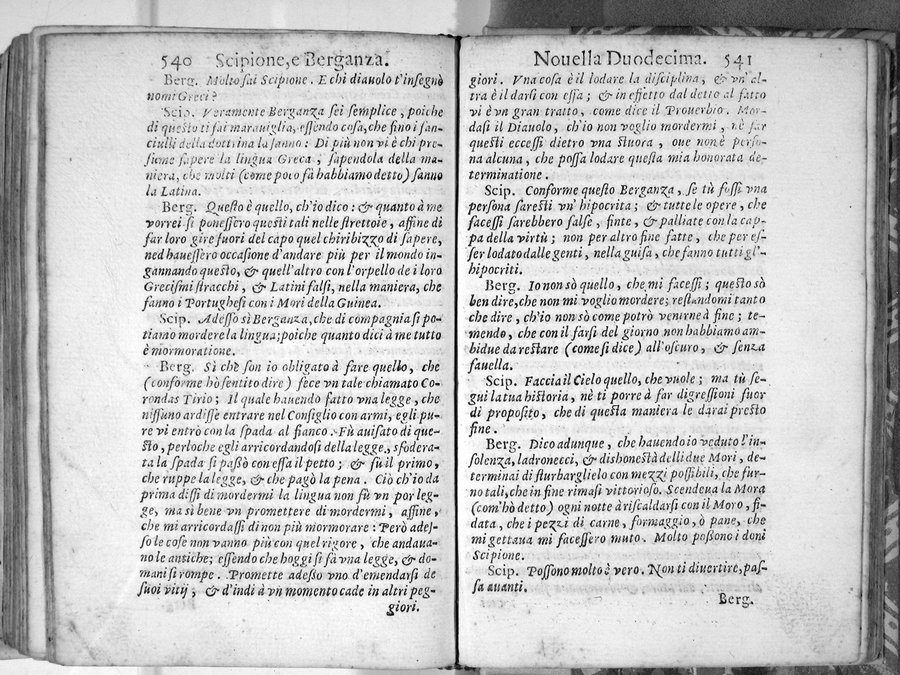 540 Scipione, e Berganza.
Berg. Molto sai Scipione. E chi diauolo t'insegnò
nomi Greci?
Scip. Veramente Berganza sei semplice, poiche
di questo ti fai marauiglia, essendo cosa, che fino i fan-
ciulli della dottrina la sanno: Di più non vi è chi pre-
sume sapere la lingua Greca, sapendola della ma-
niera, che molti (come poco fà habbiamo detto) sanno
la Latina.
Berg. Questo è quello, ch'io dico: & quanto à me
vorrei si ponessero questi tali nelle strettoie, affine di
far loro gire fuori del capo quel chiribizzo di sapere,
ned hauessero occasione d'andare più per il mondo in-
gannando questo, & quell'altro con l'orpello de i loro
Grecismi stracchi, & Latini falsi, nella maniera, che
fanno i Portughesi con i Mori della Guinea.
Scip. Adesso sì Berganza, che di compagnia si po-
tiamo mordere la lingua; poiche quanto dici à me tutto
è mormoratione.
Berg. Sì che son io obligato à fare quello, che
(conforme hò sentito dire) fece vn tale chiamato Co-
rondas Tirio; Il quale hauendo fatto vna legge, che
nissuno ardisse entrare nel Consiglio con armi, egli pu-
re vi entrò con la spada al fianco. Fù auisato di que-
sto, perloche egli arricordandosi della legge, sfodera-
ta la spada si passò con essa il petto; & fù il primo,
che ruppe la legge, & che pagò la pena. Ciò ch'io da
prima dissi di mordermi la lingua non fù vn por leg-
ge, ma sì bene vn promettere di mordermi, affine,
che mi arricordassi di non più mormorare: Però ades-
so le cose non vanno più con quel rigore, che andaua-
no le antiche; essendo che hoggi si fà vna legge, & do-
mani si rompe. Promette adesso vno d'emendarsi de
suoi vitij, & d'indi à vn momento cade in altri peg-
giori.
Nouella Duodecima. 541
giori. Vna cosa è il lodare la disciplina, & vn' al-
tra è il darsi con essa; & in effetto dal detto al fatto
vi è vn gran tratto, come dice il Prouerbio. Mor-
dasi il Diauolo, ch'io non voglio mordermi, nè far
questi eccessi dietro vna stuora, oue non è perso-
na alcuna, che possa lodare questa mia honorata de-
terminatione.
Scip. Conforme questo Berganza, se tù fussi vna
persona saresti vn' hipocrita; & tutte le opere, che
facessi sarebbero false, finte, & palliate con la cap-
pa della virtù; non per altro fine fatte, che per es-
ser lodato dalle genti, nella guisa, che fanno tutti gl'-
hipocriti.
Berg. Io non sò quello, che mi facessi; questo sò
ben dire, che non mi voglio mordere; restandomi tanto
che dire, ch'io non sò come potrò venirne à fine; te-
mendo, che con il farsi del giorno non habbiamo am-
bidue da restare (come si dice) all'oscuro, & senza
fauella.
Scip. Faccia il Cielo quello, che vuole; ma tù se-
gui la tua historia, nè ti porre à far digressioni fuor
di proposito, che di questa maniera le darai presto
fine.
Berg. Dico adunque, che hauendo io veduto l'in-
solenza, ladronecci, & dishonestà delli due Mori, de-
terminai di sturbarglielo con mezzi possibili, che fur-
no tali, che in fine rimasi vittorioso. Scendeua la Mora
(com'hò detto) ogni notte à riscaldarsi con il Moro, fi-
data, che i pezzi di carne, formaggio, ò pane, che
mi gettaua mi facessero muto. Molto possono i doni
Scipione.
Scip. Possono molto è vero. Non ti diuertire, pas-
sa auanti.
Berg.